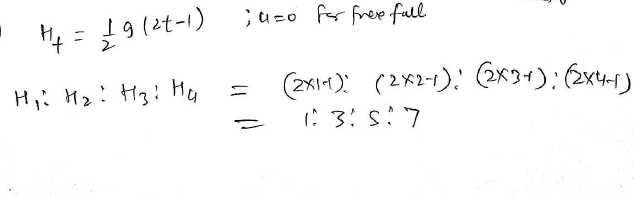 H_t = 1/2 g (2t-1) ; u=0 for free fall
H₁: H₂: H₃: H₄ = (2x1-1): (2x2-1): (2x3-1): (2x4-1)
= 1: 3: 5: 7